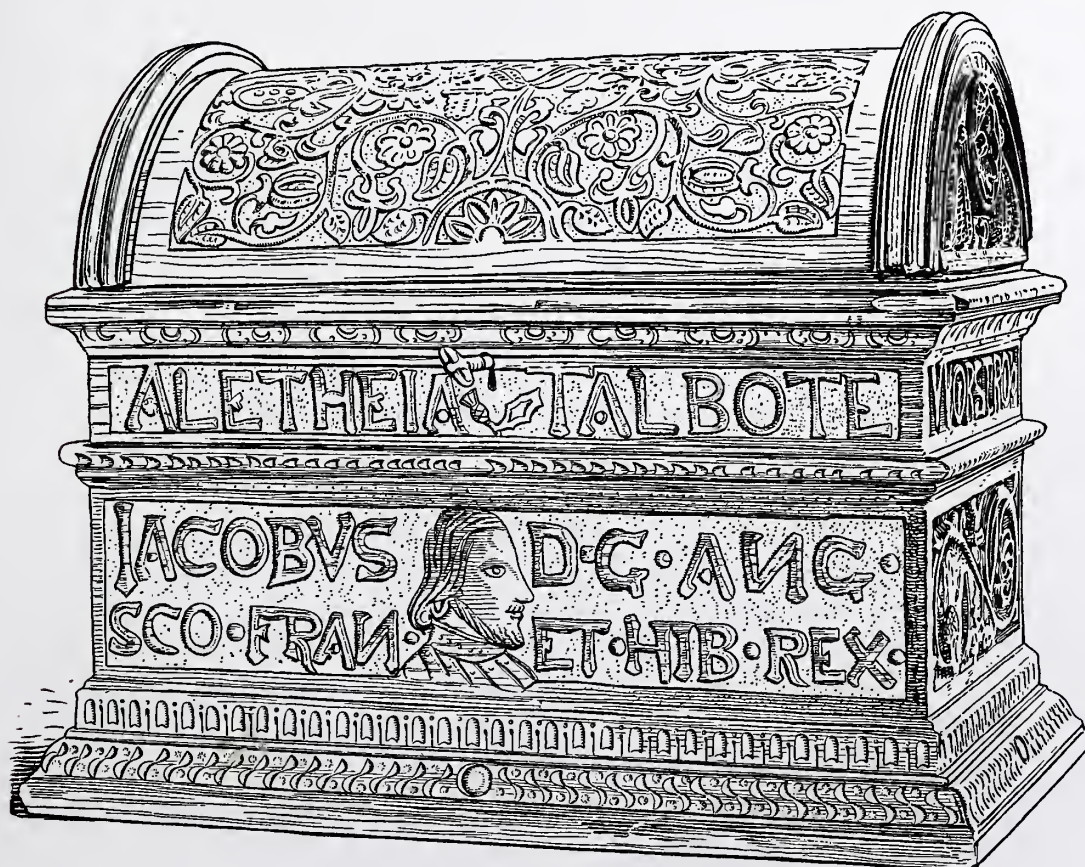 ALETHEIA·TALBOTE
IACOBVS D·G·ANG·
SCO·FRAN·ET·HIB·REX·